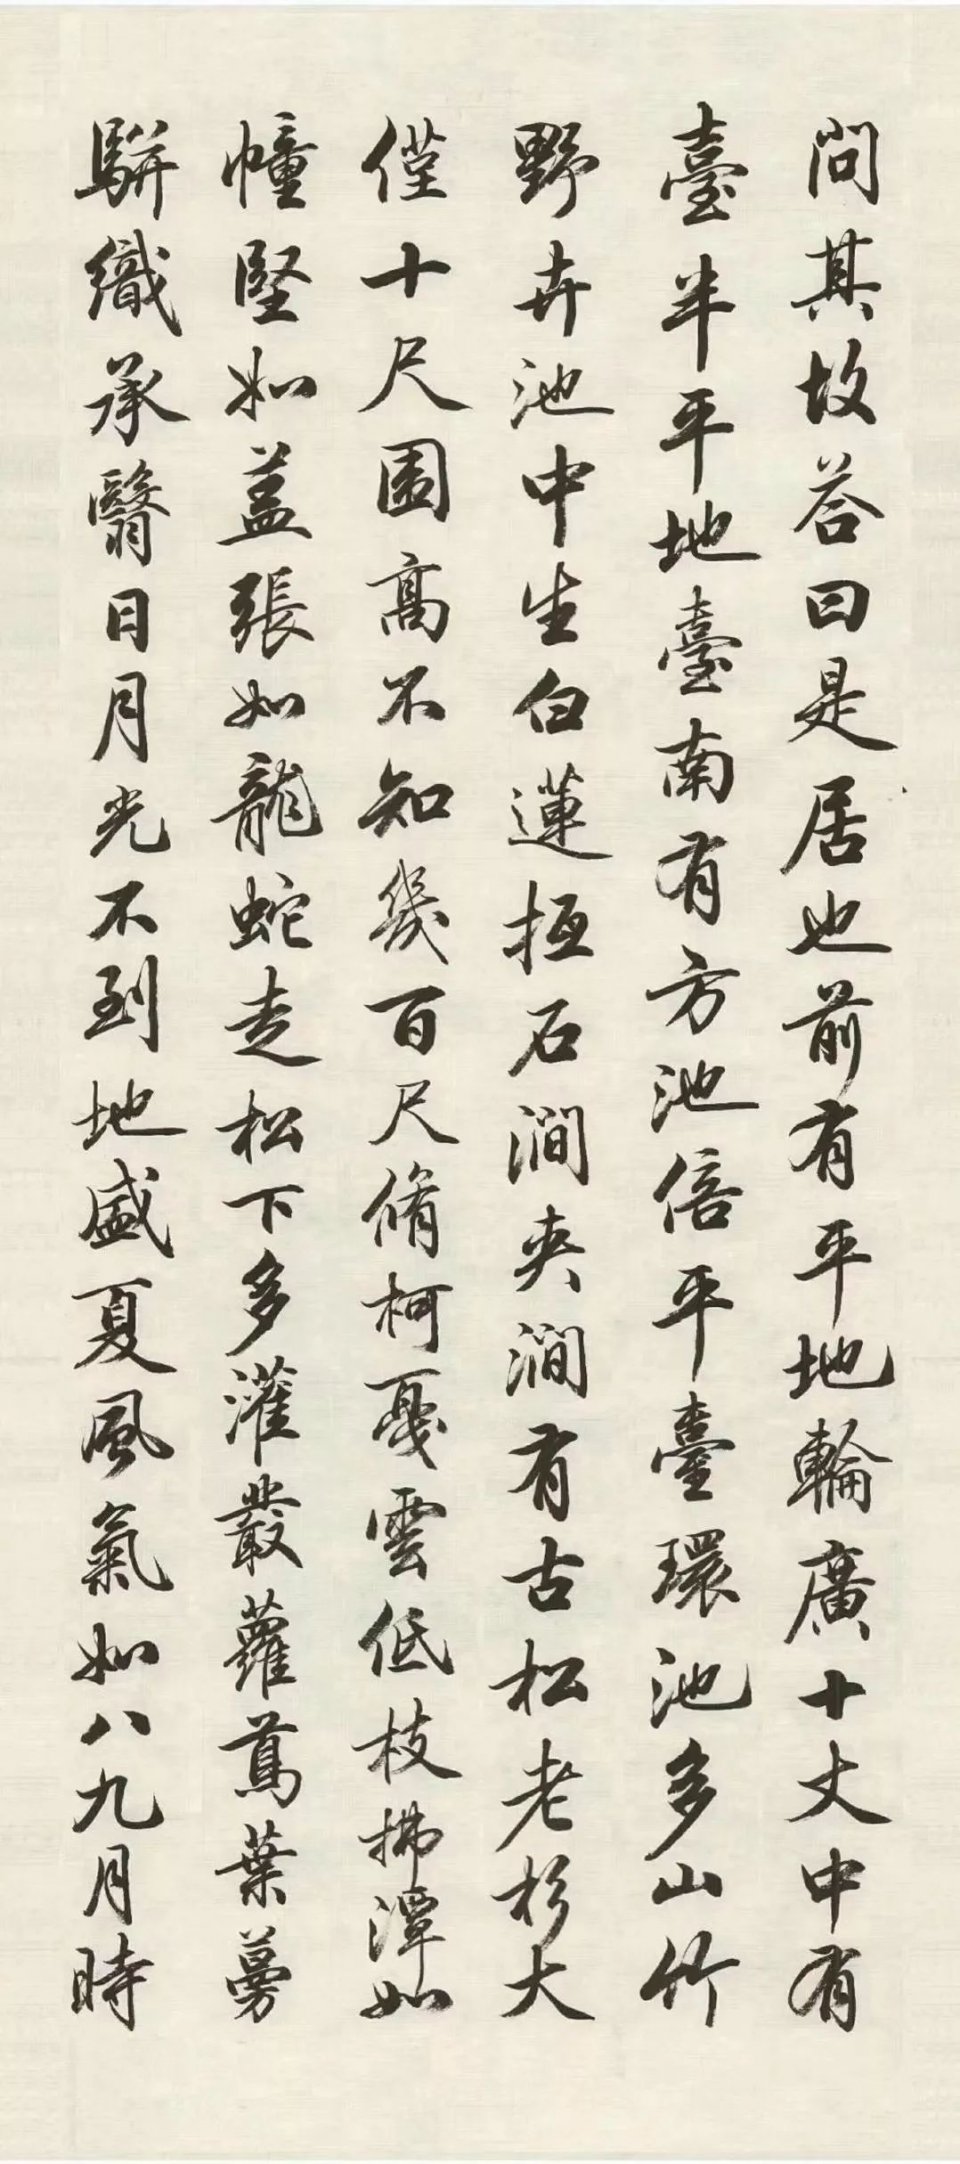 問其故答曰是居也前有平地輪廣十丈中有
臺半平地臺南有方池倍平臺環池多山竹
野卉池中生白蓮抠石澗夾澗有古松老杉大
僅十尺圍高不知幾百尺脩柯戛雲低枝拂潭如
幢堅如蓋張如龍蛇走松下多灌叢蘿蔦葉蔓
駢織承翳日月光不到地盛夏風氣如八九月時